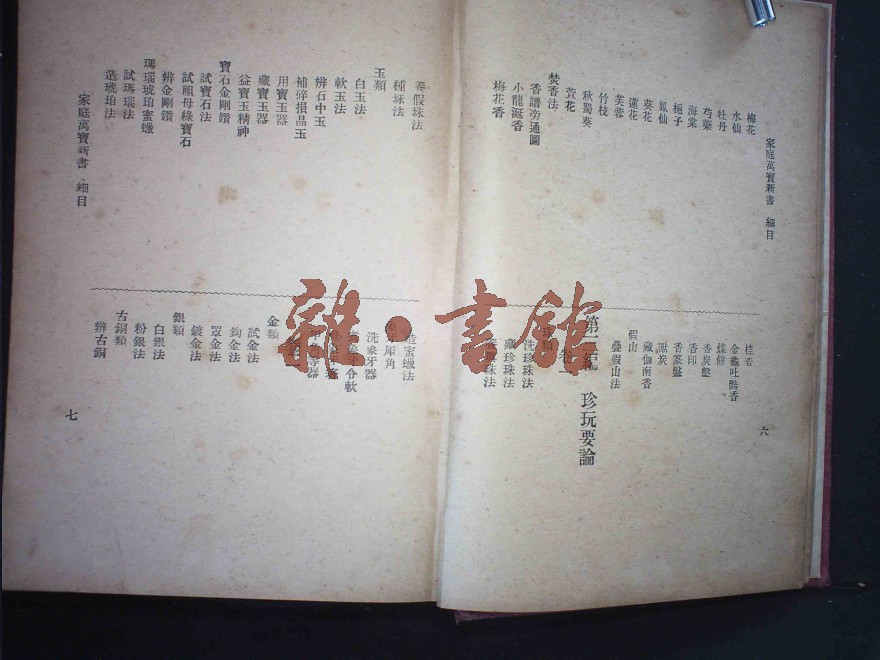 家庭萬寶新書 細目
梅花
水仙
牡丹
芍藥
海棠
梔子
鳳仙
葵花
蓮花
芙蓉
竹枝
秋蜀葵
萱花
焚香法
香譜旁通圖
小龍涎香
梅花香
金龜吐豔香
煤餅
香炭墼
香印
香篆盤
獸炭
藏伽南香
假山
疊假山法
第二編 珍玩要論
洗珍珠法
藏珍珠法
六
等假珠法
種珠法
玉類
白玉法
軟玉法
辨石中玉
補碎損晶玉
用寶玉器
藏寶玉器
益寶玉精神
寶石金剛鑽
試寶石法
試祖母綠寶石
辨金剛鑽
瑪瑙琥珀蜜蠟
試瑪瑙法
造琥珀法
造蜜蠟法
洗象牙器
金類
試金法
鈎金法
罩金法
鍍金法
銀類
白銀法
粉銀法
古銅類
辨古銅
家庭萬寶新書 細目
七
雜·書館